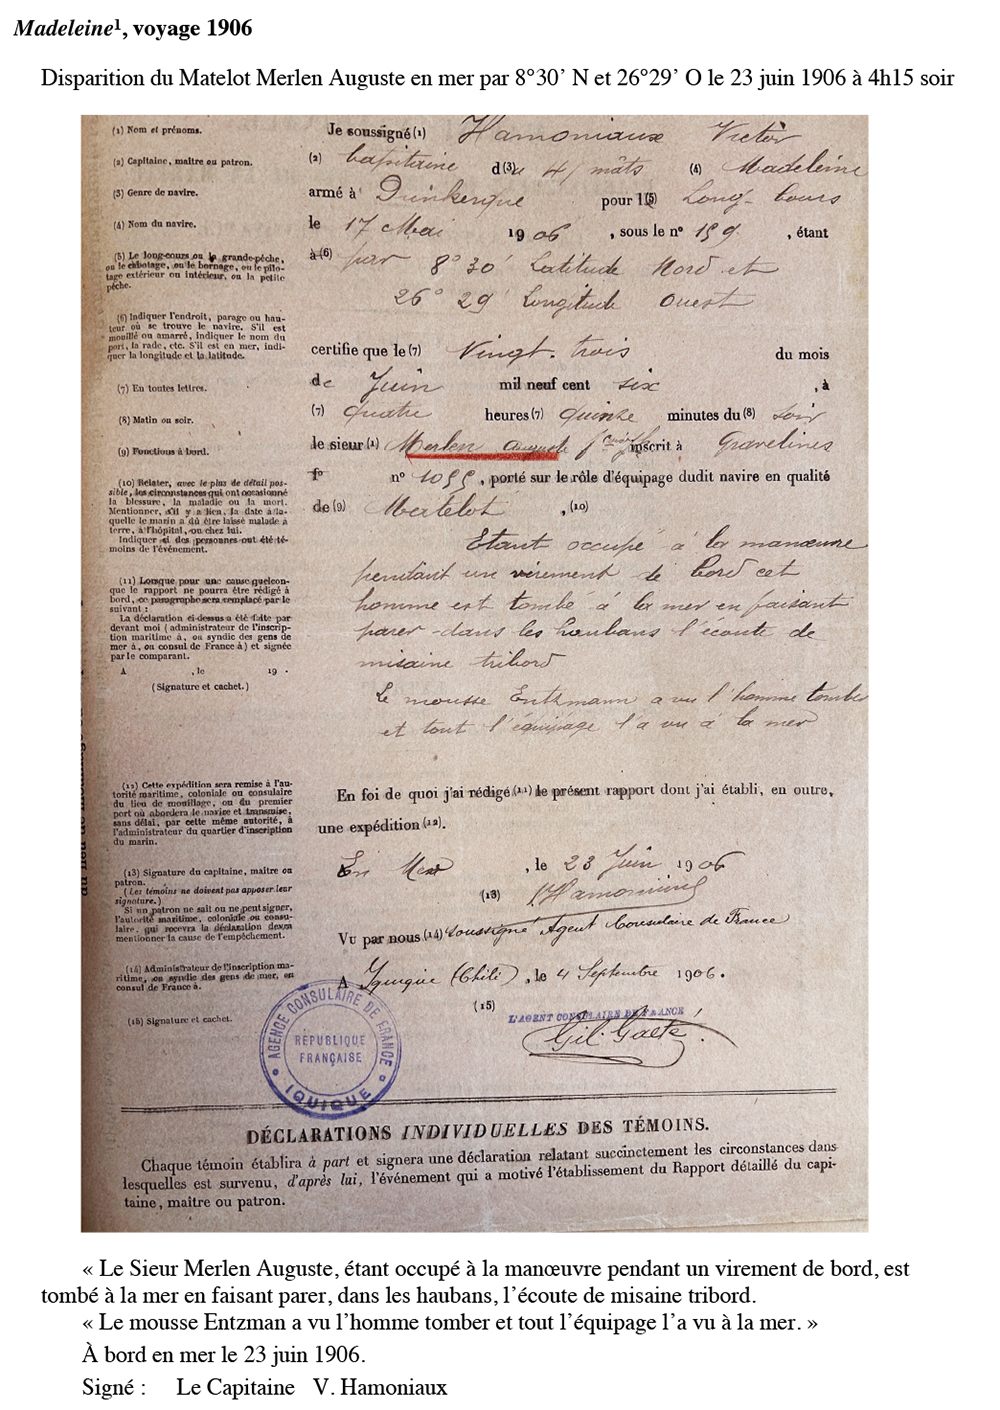 Madeleine¹, voyage 1906
Disparition du Matelot Merlen Auguste en mer par 8°30’ N et 26°29’ O le 23 juin 1906 à 4h15 soir
(1) Nom et prénoms.
(2) Capitaine, maître ou patron.
(3) Genre de navire.
(4) Nom du navire.
(5) Le long-cours ou la grande-pêche,
ou le cabotage, ou le bornage, ou le pilo-
tage extérieur ou intérieur, ou la petite
pêche.
(6) Indiquer l'endroit, parage ou hau-
teur où se trouve le navire. S'il est
mouillé ou amarré, indiquer le nom du
port, la rade, etc. S'il est en mer, indi-
quer la longitude et la latitude.
(7) En toutes lettres.
(8) Matin ou soir.
(9) Fonctions à bord.
(10) Relater, avec le plus de détail pos-
sible, les circonstances qui ont occasionné
la blessure, la maladie ou la mort.
Mentionner, s'il y a lieu, la date à la-
quelle le marin a dû être laissé malade à
terre, à l'hôpital, ou chez lui.
Indiquer si des personnes ont été té-
moins de l'événement.
(11) Lorsque pour une cause quelcon-
que le rapport ne pourra être rédigé à
bord, ce paragraphe sera remplacé par le
suivant :
La déclaration ci-dessus a été faite par
devant moi (administrateur de l'inscrip-
tion maritime à, ou syndic des gens de
mer à, ou consul de France à) et signée
par le comparant.
A , le 19 .
(Signature et cachet.)
(12) Cette expédition sera remise à l'au-
torité maritime, coloniale ou consulaire
du lieu de mouillage, ou du premier
port où abordera le navire et transmise,
sans délai, par cette même autorité, à
l'administrateur du quartier d'inscription
du marin.
(13) Signature du capitaine, maître ou
patron.
(Les témoins ne doivent pas apposer leur
signature.)
Si un patron ne sait ou ne peut signer,
l'autorité maritime, coloniale ou consu-
laire, qui recevra la déclaration devra
mentionner la cause de l'empêchement.
(14) Administrateur de l'inscription ma-
ritime, ou syndic des gens de mer, ou
consul de France à.
(15) Signature et cachet.
Je soussigné (1) Hamoniaux Victor
(2) Capitaine d(3)u 4 mâts (4) Madeleine
armé à Dunkerque pour l(5) Long-Cours
le 17 Mai 1906 , sous le n° 159 , étant
à (6) par 8° 30' Latitude Nord et
26° 29' Longitude Ouest
certifie que le (7) Vingt-trois du mois
de Juin mil neuf cent six , à
(7) quatre heures (7) quinze minutes du (8) soir
le sieur (1) Merlen Auguste inscrit à Gravelines
f° n° 1055 , porté sur le rôle d'équipage dudit navire en qualité
de (9) Matelot , (10)
Etant occupé à la manœuvre
pendant un virement de bord cet
homme est tombé à la mer en faisant
parer dans les haubans l'écoute de
misaine tribord
Le mousse Entzmann a vu l'homme tomber
et tout l'équipage l'a vu à la mer
En foi de quoi j'ai rédigé (11) le présent rapport dont j'ai établi, en outre,
une expédition (12).
En Mer , le 23 Juin 1906
(13) Hamoniaux
Vu par nous (14) soussigné Agent Consulaire de France
A Iquique (Chili) , le 4 Septembre 1906.
(15)
L'AGENT CONSULAIRE DE FRANCE
Gil. Gaete
AGENCE CONSULAIRE DE FRANCE
RÉPUBLIQUE
FRANÇAISE
IQUIQUE
DÉCLARATIONS INDIVIDUELLES DES TÉMOINS.
Chaque témoin établira à part et signera une déclaration relatant succinctement les circonstances dans
lesquelles est survenu, d'après lui, l'événement qui a motivé l'établissement du Rapport détaillé du capi-
taine, maître ou patron.
« Le Sieur Merlen Auguste, étant occupé à la manœuvre pendant un virement de bord, est
tombé à la mer en faisant parer, dans les haubans, l’écoute de misaine tribord.
« Le mousse Entzman a vu l’homme tomber et tout l’équipage l’a vu à la mer. »
À bord en mer le 23 juin 1906.
Signé : Le Capitaine V. Hamoniaux